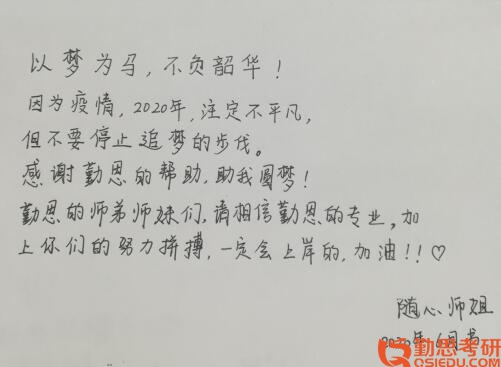 以梦为马，不负韶华！
因为疫情，2020年，注定不平凡，
但不要停止追梦的步伐。
感谢勤思的帮助，助我圆梦！
勤思的师弟师妹们，请相信勤思的专业，加
上你们的努力拼搏，一定会上岸的，加油！！♡
随心师姐
2020年6月书
勤思考研
QSIEDU.COM